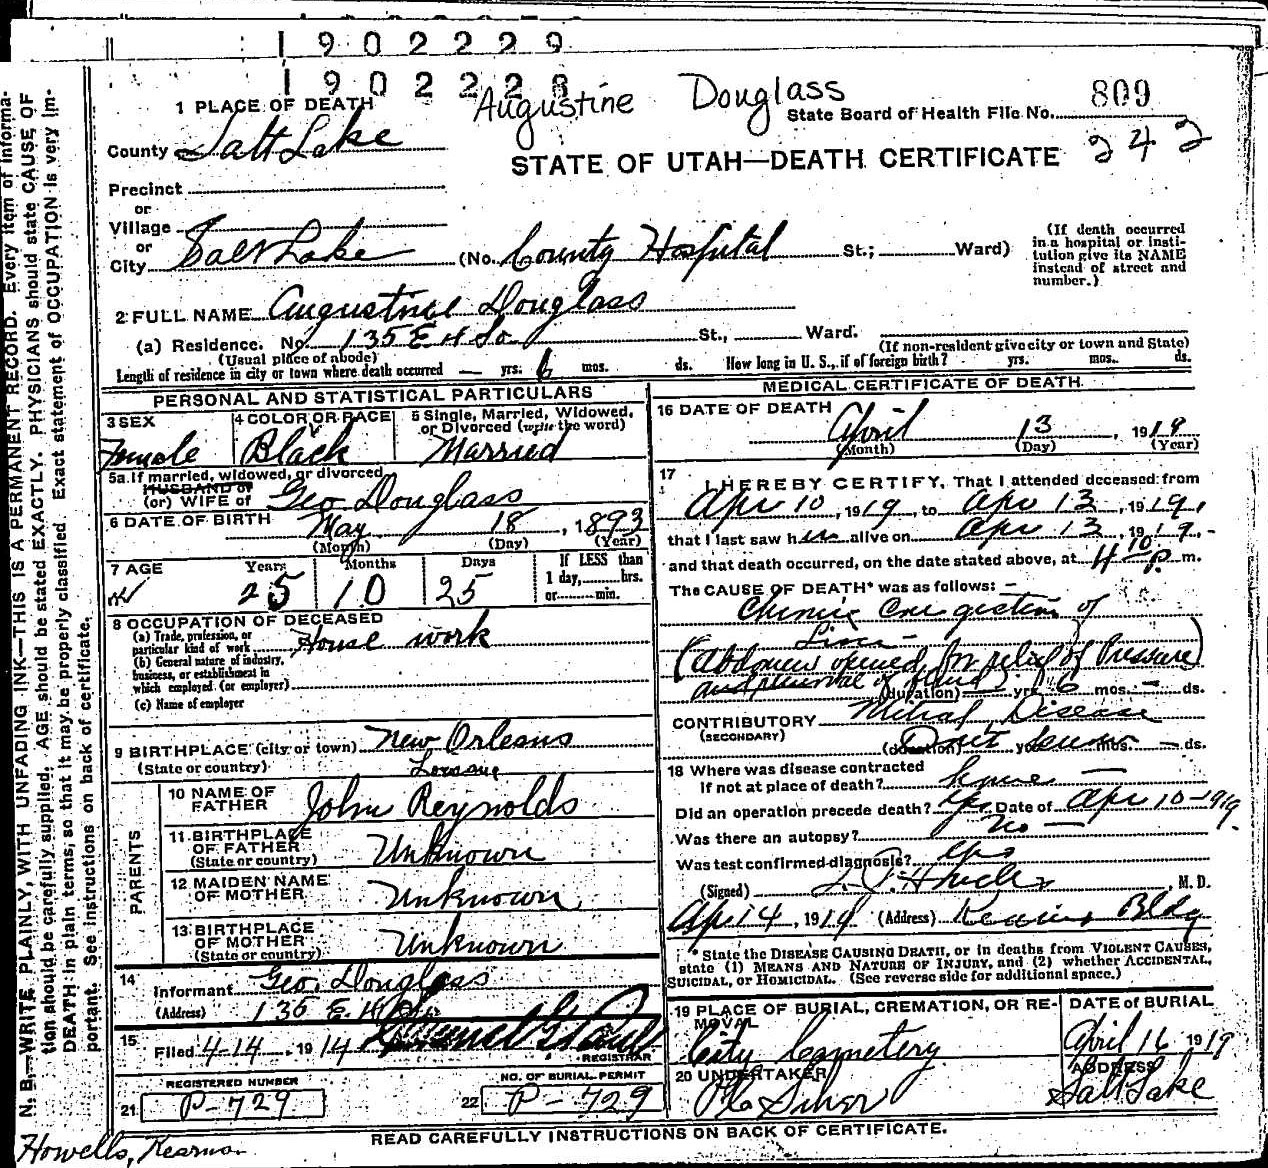 1902229
1902228
Augustine Douglass
1 PLACE OF DEATH
State Board of Health File No. 809
County Salt Lake
STATE OF UTAH—DEATH CERTIFICATE 242
Precinct
or
Village
or
City Salt Lake (No. County Hospital St.; Ward)
(If death occurred in a hospital or institution give its NAME instead of street and number.)
2 FULL NAME Augustine Douglass
(a) Residence. No. 135 E H So St., Ward.
(Usual place of abode) (If non-resident give city or town and State)
Length of residence in city or town where death occurred — yrs. 6 mos. ds. How long in U. S., if of foreign birth? yrs. mos. ds.
PERSONAL AND STATISTICAL PARTICULARS
3 SEX Female
4 COLOR OR RACE Black
5 Single, Married, Widowed, or Divorced (write the word) Married
5a If married, widowed, or divorced
HUSBAND of
(or) WIFE of Geo Douglass
6 DATE OF BIRTH May 18, 1893
(Month) (Day) (Year)
7 AGE Years 25 Months 10 Days 25
If LESS than 1 day, hrs. or min.
8 OCCUPATION OF DECEASED
(a) Trade, profession, or particular kind of work House work
(b) General nature of industry, business, or establishment in which employed (or employer)
(c) Name of employer
9 BIRTHPLACE (city or town) New Orleans
(State or country)
PARENTS
10 NAME OF FATHER John Reynolds
11 BIRTHPLACE OF FATHER (State or country) Unknown
12 MAIDEN NAME OF MOTHER Unknown
13 BIRTHPLACE OF MOTHER (State or country) Unknown
14 Informant Geo. Douglass
(Address) 135 E H So
15 Filed 4-14, 1914
REGISTRAR
REGISTERED NUMBER
21 P-729
NO. OF BURIAL PERMIT
22 P-729
MEDICAL CERTIFICATE OF DEATH
16 DATE OF DEATH April 13, 1919
(Month) (Day) (Year)
17 I HEREBY CERTIFY, That I attended deceased from
Apr 10, 1919, to Apr 13, 1919,
that I last saw her alive on Apr 13, 1919
and that death occurred, on the date stated above, at 4 10 p m.
The CAUSE OF DEATH* was as follows:
Chronic Congestion of
Liver
(Abdomen opened for relief of Pressure
and removal of fluid)
(duration) — yrs 6 mos. — ds.
CONTRIBUTORY Mitral Disease
(SECONDARY)
(duration) Dont know yrs. mos. — ds.
18 Where was disease contracted
If not at place of death? home
Did an operation precede death? yes Date of Apr 10-1919.
Was there an autopsy? No
Was test confirmed diagnosis? yes
(Signed) , M. D.
Apr 14, 1919 (Address) Kearns Bldg
* State the DISEASE CAUSING DEATH, or in deaths from VIOLENT CAUSES,
state (1) MEANS AND NATURE OF INJURY, and (2) whether ACCIDENTAL,
SUICIDAL, or HOMICIDAL. (See reverse side for additional space.)
19 PLACE OF BURIAL, CREMATION, OR REMOVAL City Cemetery
DATE of BURIAL April 16 1919
20 UNDERTAKER
ADDRESS Salt Lake
READ CAREFULLY INSTRUCTIONS ON BACK OF CERTIFICATE.
Howells, Kearns
N. B.—WRITE PLAINLY, WITH UNFADING INK—THIS IS A PERMANENT RECORD. Every item of informa-
tion should be carefully supplied. AGE should be stated EXACTLY. PHYSICIANS should state CAUSE OF
DEATH in plain terms, so that it may be properly classified. Exact statement of OCCUPATION is very im-
portant. See instructions on back of certificate.